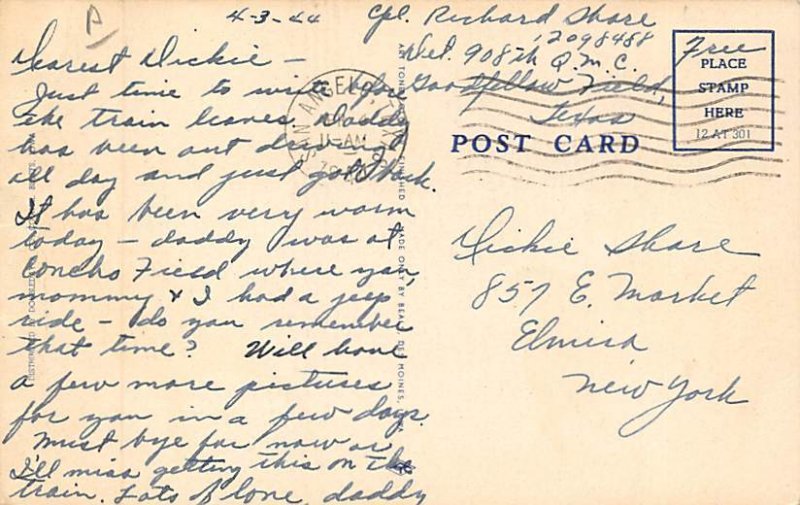 4-3-44
Cpl. Richard Share
12098488
Det. 908th Q.M.C.
Goodfellow Field,
Texas
Free
PLACE
STAMP
HERE
12 AT 301
POST CARD
SAN ANGELO, TEX
11-AM
Dearest Dickie —
Just time to write before
the train leaves. Daddy
has been out driving
all day and just got back.
It has been very warm
today — daddy was at
Concho Field where you,
mommy & I had a jeep
ride — do you remember
that time? Will have
a few more pictures
for you in a few days.
Must bye for now or
I'll miss getting this on the
train. Lots of love, daddy
Dickie Share
857 E. Market
Elmira
New York
MADE ONLY BY BEALS, DES MOINES,